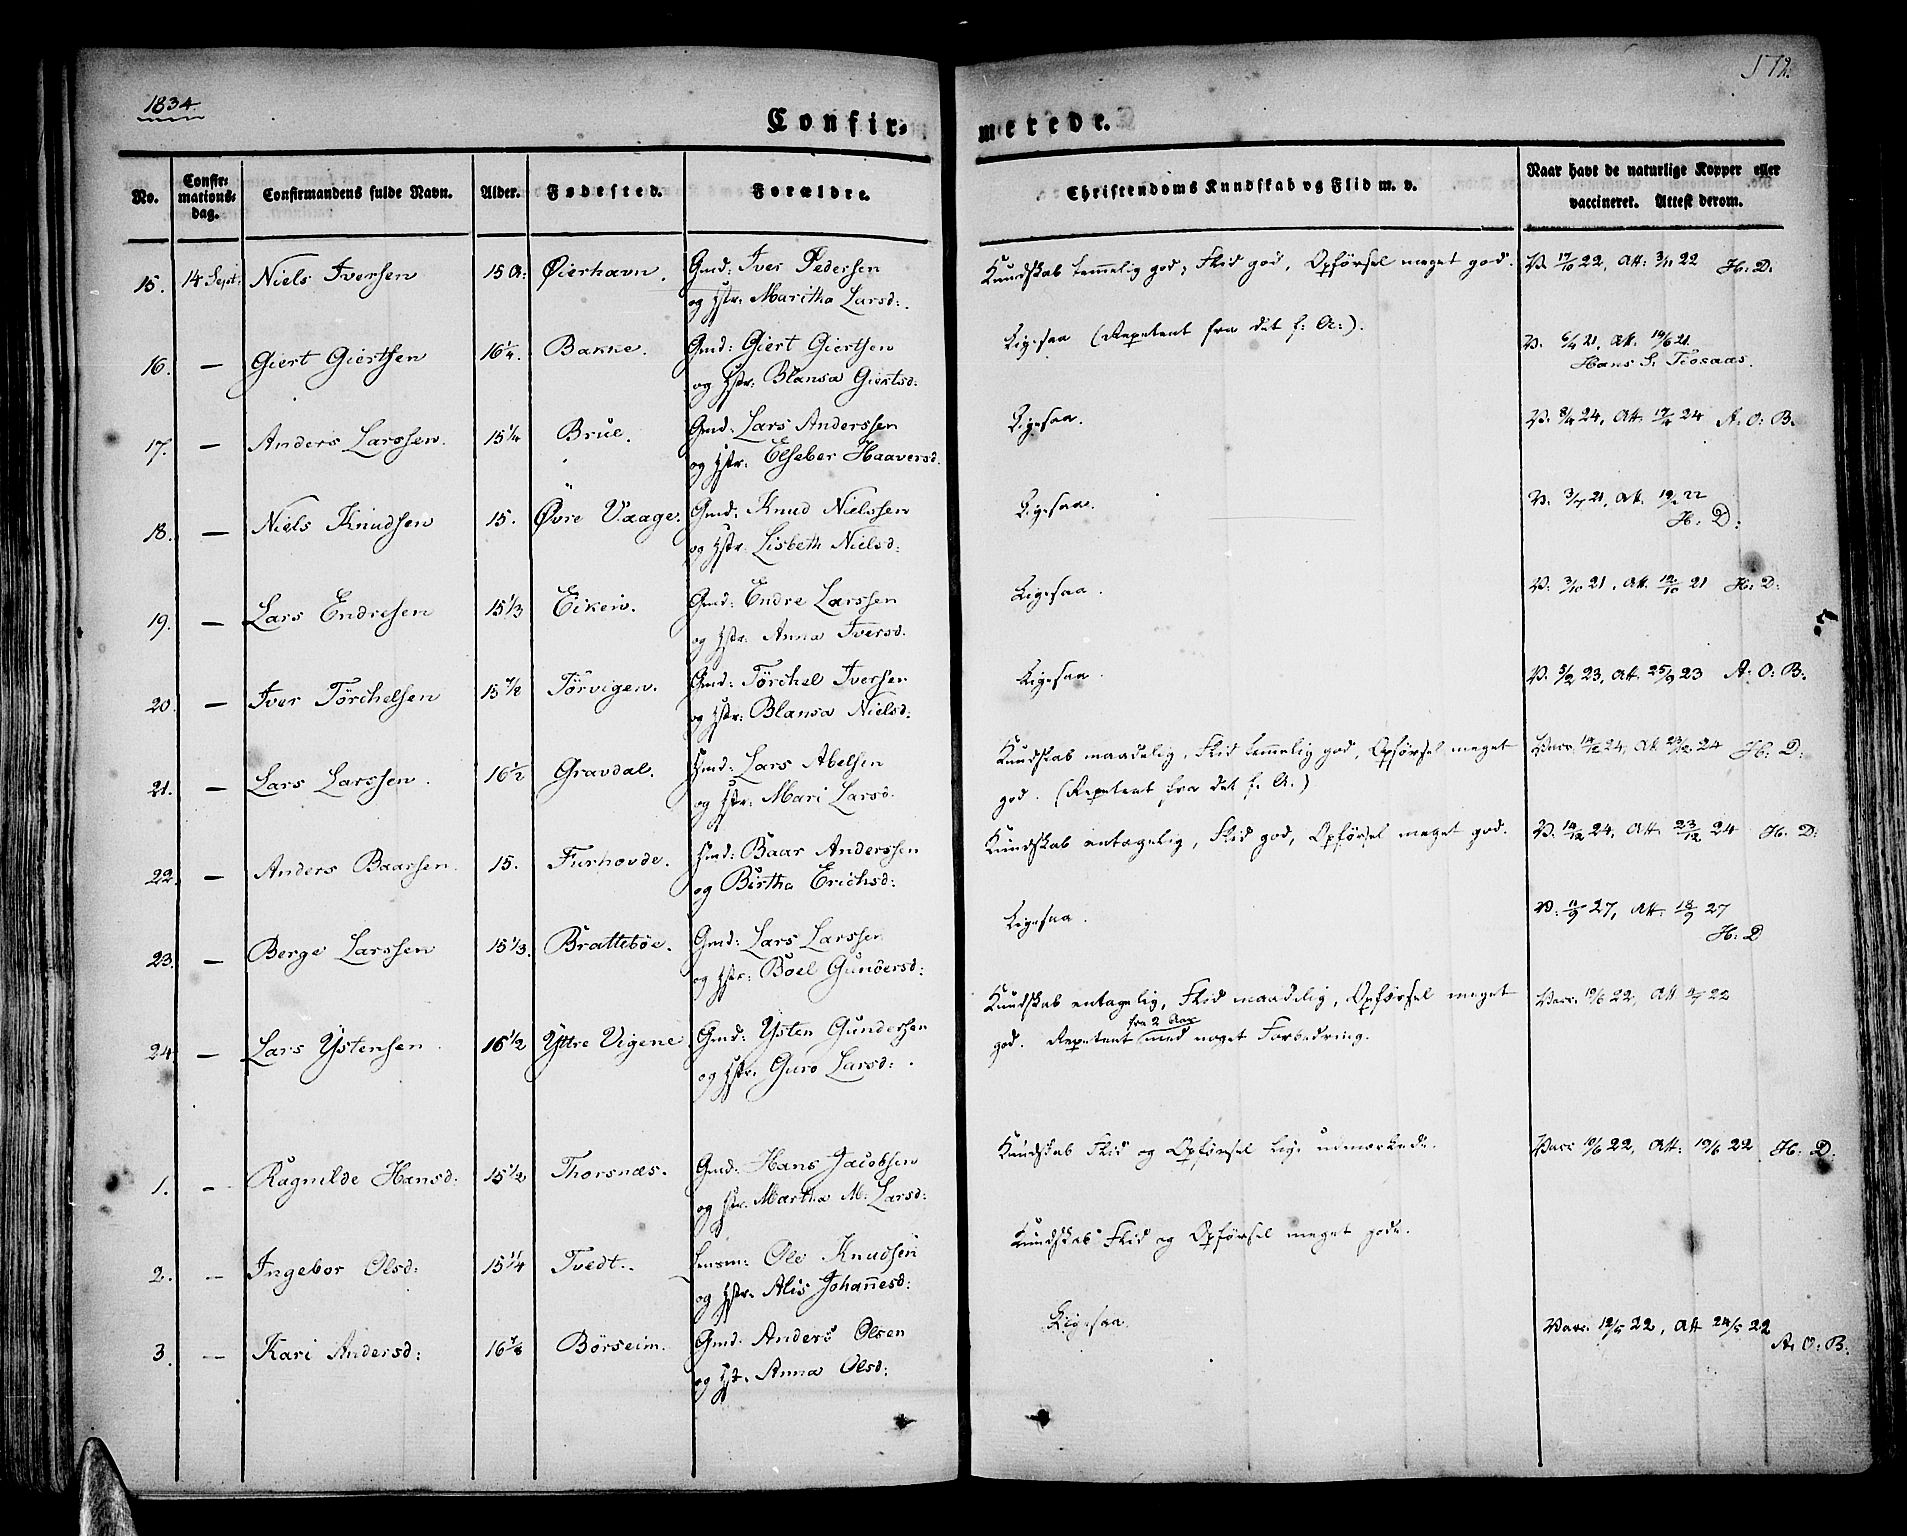 1834.
172.
Confirmerede.
No. Confirmationsdag. Confirmandens fulde Navn. Alder. Fødested. Forældre. Christendoms Kundskab og Flid m. v. Naar havt de naturlige Kopper eller vaccineret. Attest derom.
15. 14 Sept: Niels Iversen 15 A: Øierhavn. Gmd: Iver Pedersen Kundskab temmelig god, Flid god, Opførsel meget god. V. 17/10 22, Att: 3/11 22 H: D:
og Hstr: Maritha Larsd:.
16. — Giert Giertsen 16 1/4. Bakke. Gmd: Giert Giertsen Ligesaa (Repetent fra det f: A:). V. 6/4 21, Att. 14/6 21.
og Hstr: Blansa Giertsd: Hans S. Tiosaas.
17. — Anders Larssen. 15 1/4 Brue. Gmd: Lars Anderssen Ligesaa. V. 8/4 24, Att. 17/4 24 A: O: B.
og Hstr: Elseber Haaversd.
18. — Niels Knudsen 15. Øvre Vaage. Gmd: Knud Nielssen Ligesaa. V. 3/7 21, Att. 19/2 22
og Hstr: Lisbeth Nielsd: H: D:
19. — Lars Endresen 15 1/3 Eikeiv. Gmd: Endre Larssen Ligesaa. V: 3/10 21, Att. 12/10 21 H: D:
og Hstr: Anna Iversd.
20. — Iver Törchelsen 15 1/2 Törvigen. Gmd: Törchel Iversen Ligesaa. V. 5/2 23, Att. 25/9 23 A: O: B.
og Hstr: Blansa Nielsd:
21. — Lars Larssen. 16 1/2 Gravdal. Hmd: Lars Abelsen Kundskab maadelig, Flid temmelig god, Opførsel meget Vacc. 14/12 24, Att. 23/12 24 H: D:
og Hstr: Mari Larsd. god. (Repetent fra det f. A:)
22. — Anders Baarsen. 15. Furhovde. Hmd: Baar Anderssen Kundskab antagelig, Flid god, Opførsel meget god. V: 14/12 24, Att. 23/12 24 H: D:
og Birtha Erichsd:
23. — Berge Larssen 15 1/3. Brattebøe. Gmd: Lars Larssen Ligesaa. V: 11/9 27, Att: 18/9 27
og Hstr: Boel Gundersd: H: D
24. — Lars Ystensen. 16 1/2 Yttre Vigene Gmd: Ysten Gundersen Kundskab antagelig, Flid maadelig, Opførsel meget Vacc: 10/6 22, Att
fra 2 Aar
og Hstr: Guro Larsd:. god. Repetent med noget Forbedring.
1. — Ragnilde Hansd: 15 1/2 Thorsnæs. Gmd: Hans Jacobsen Kundskab Flid og Opførsel lige udmærkede. Vacc 10/6 22, Att: 19/6 22 H: D:
og Hstr. Martha M: Larsd:
2. — Ingebor Olsd: 15 1/4 Tvedt. Ole Knudsen Kundskab Flid og Opførsel meget gode.
og Hstr: Alis Johannesd:
3. — Kari Andersd: 16 1/8 Börseim. Gmd. Anders Olsen Ligesaa. Vacc: 12/5 22, Att 24/5 22
og Hst. Anna Olsd: A: O: B: